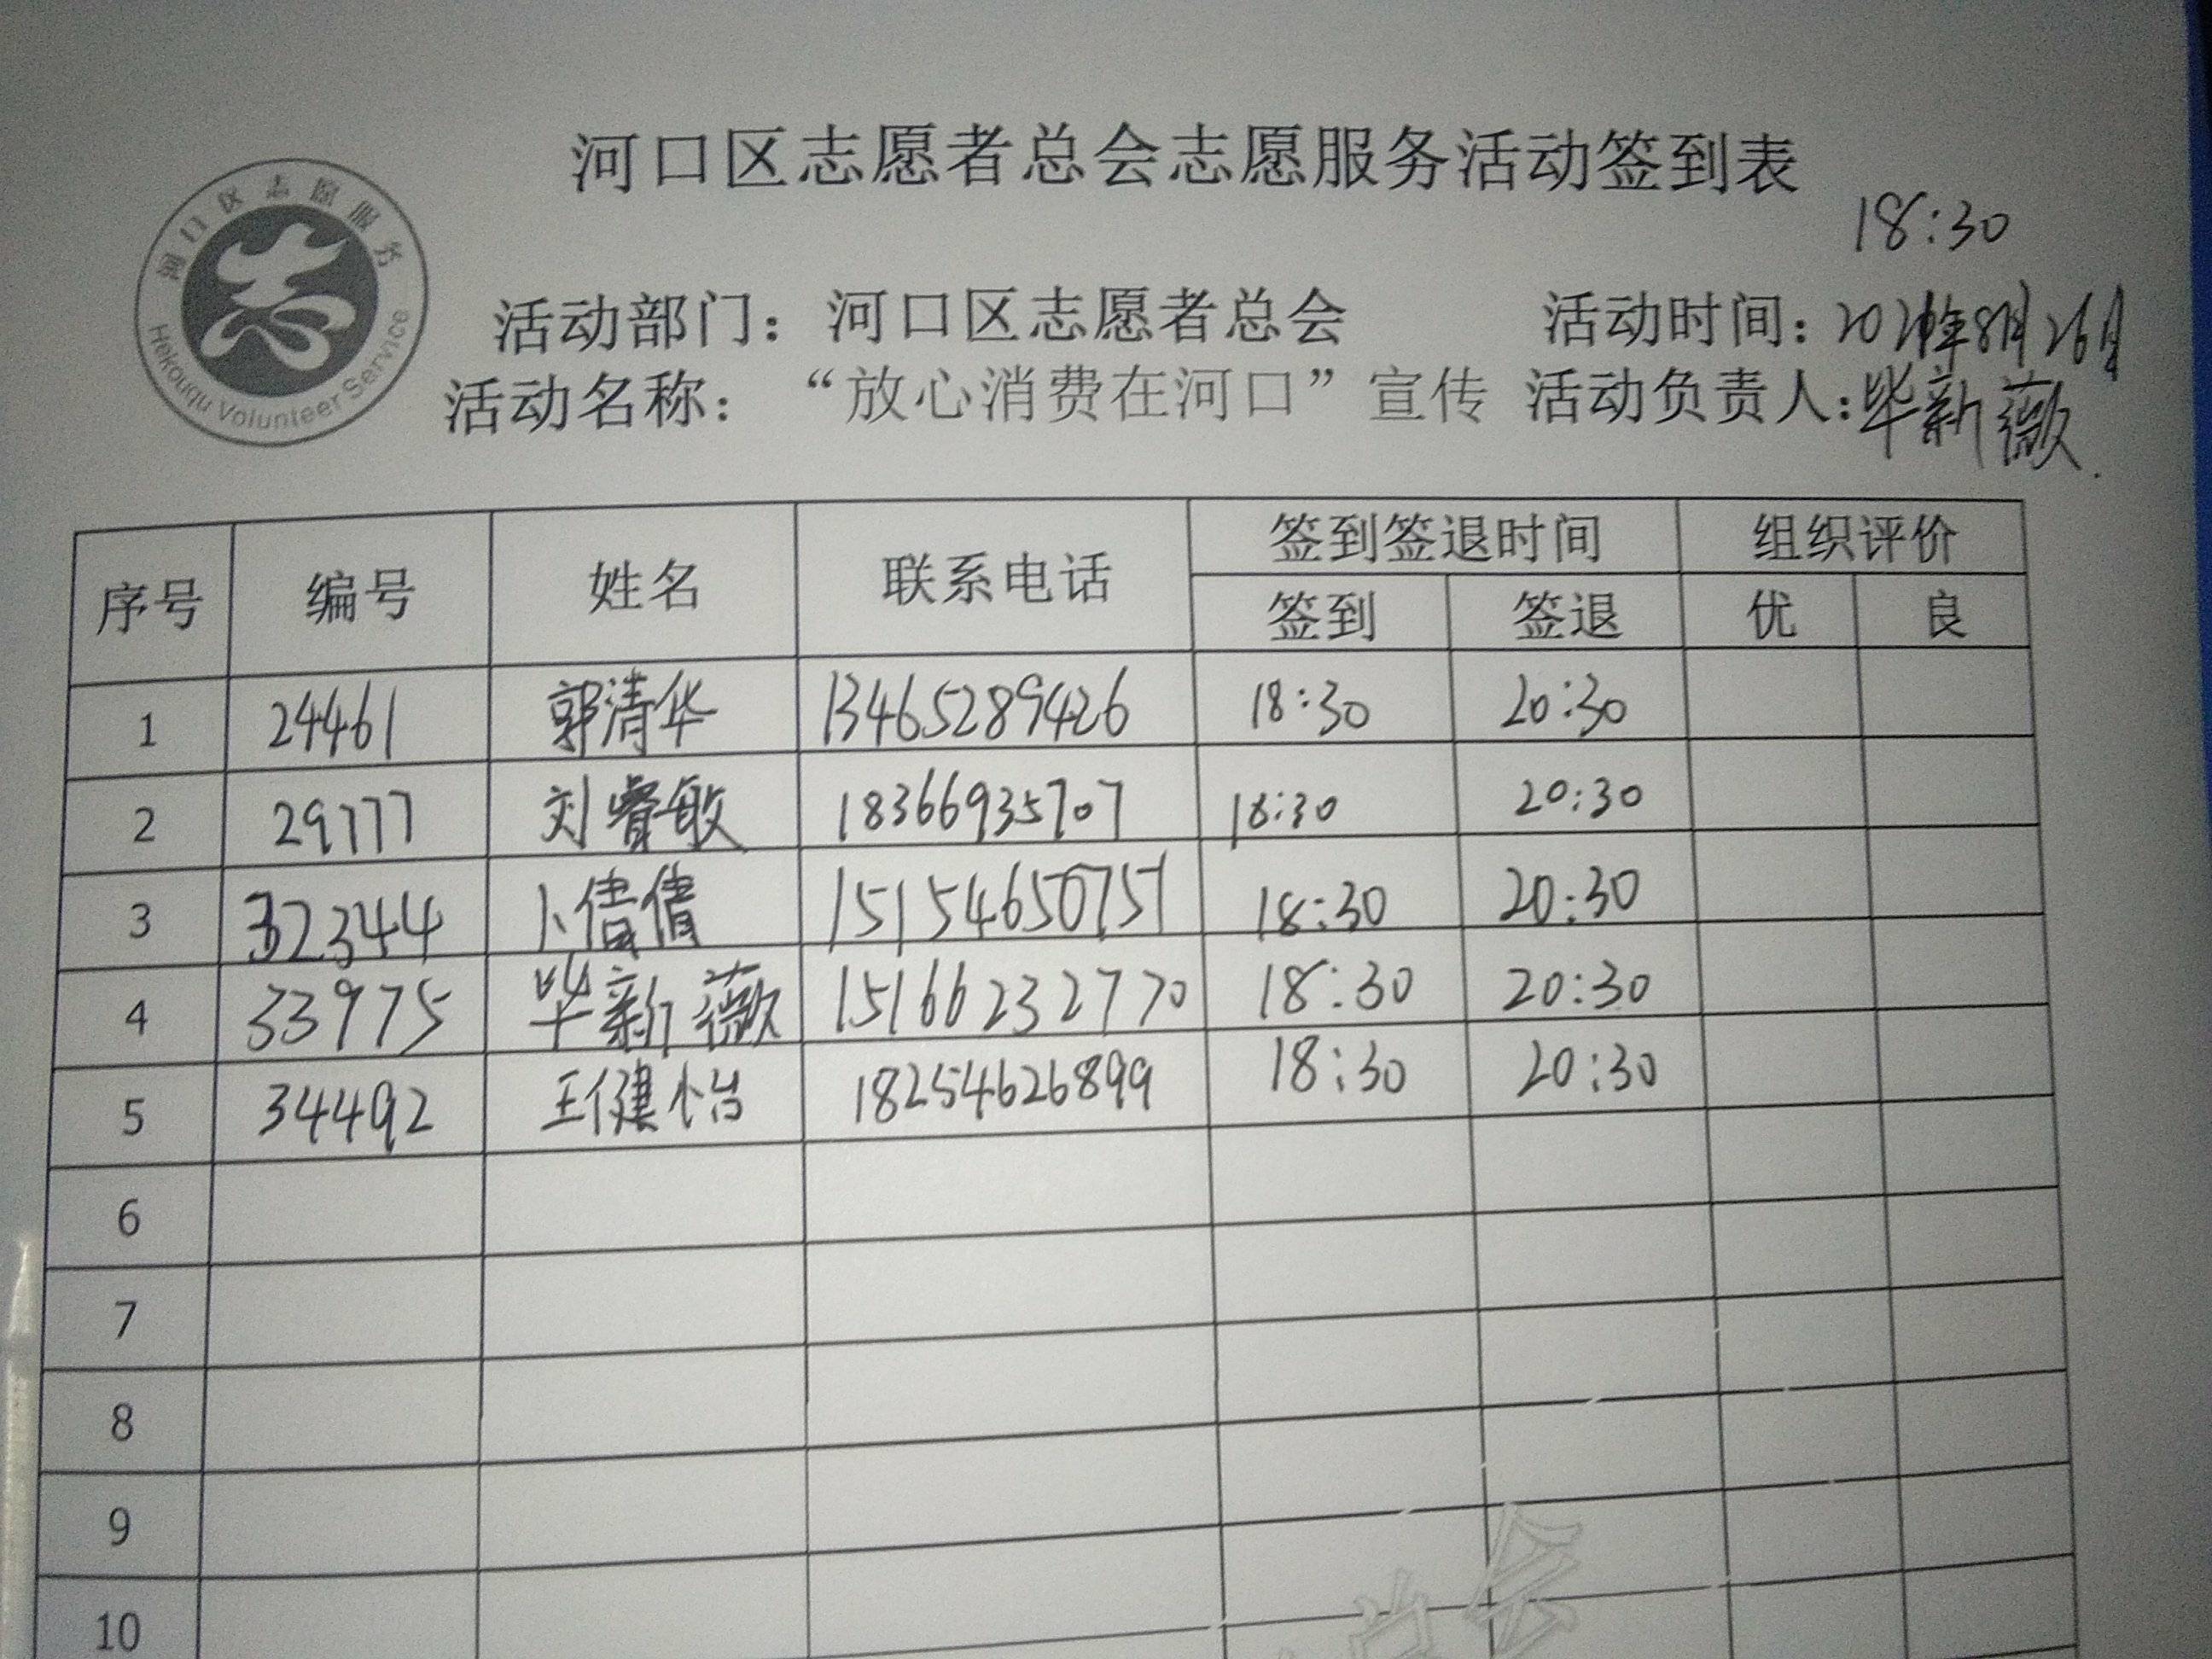 河口区志愿者总会志愿服务活动签到表
18:30
河口区志愿服务
Hekouqu Volunteer Service
活动部门：河口区志愿者总会 活动时间：2021年8月26日
活动名称：“放心消费在河口”宣传 活动负责人：毕新薇
序号 编号 姓名 联系电话 签到签退时间 组织评价
签到 签退 优 良
1 24461 郭清华 13465289426 18:30 20:30
2 29777 刘睿敏 18366935707 18:30 20:30
3 32344 卜倩倩 15154650751 18:30 20:30
4 33975 毕新薇 15166232770 18:30 20:30
5 34492 王健怡 18254626899 18:30 20:30
6
7
8
9
10
总会